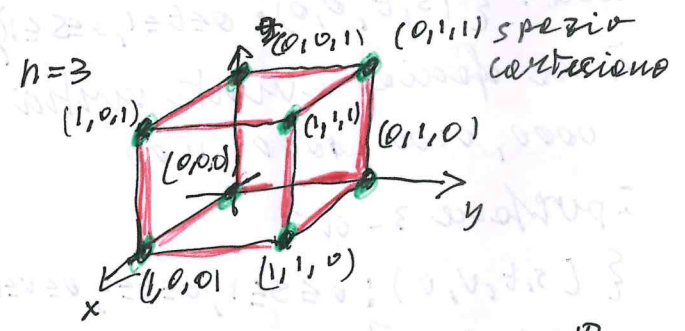 z (0,0,1) (0,1,1) spazio
n=3 cartesiano
(1,0,1) (1,1,1) (0,1,0)
(0,0,0)
y
(1,0,0) (1,1,0)
x